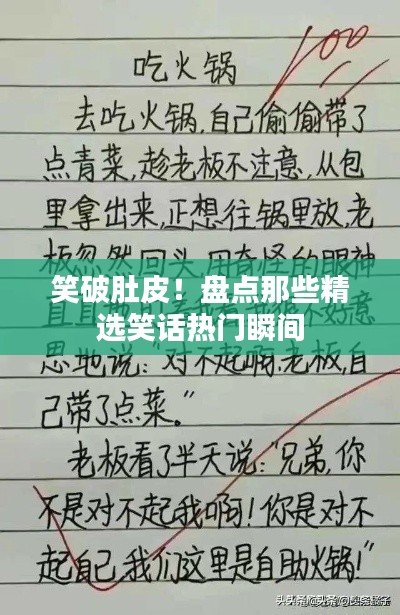 100
吃火锅
去吃火锅,自己偷偷带了
点青菜,趁老板不注意,从包
里拿出来,正想往锅里放,老
板忽然回头,用奇怪的眼神
笑破肚皮！盘点那些精
选笑话热门瞬间
直直
不好意
思地说:"对不起啊,老板,自
己带了点菜。"
老板看了半天说:"兄弟,你
不是对不起我啊!你是对不
起自己,我们这里是自助火锅!"